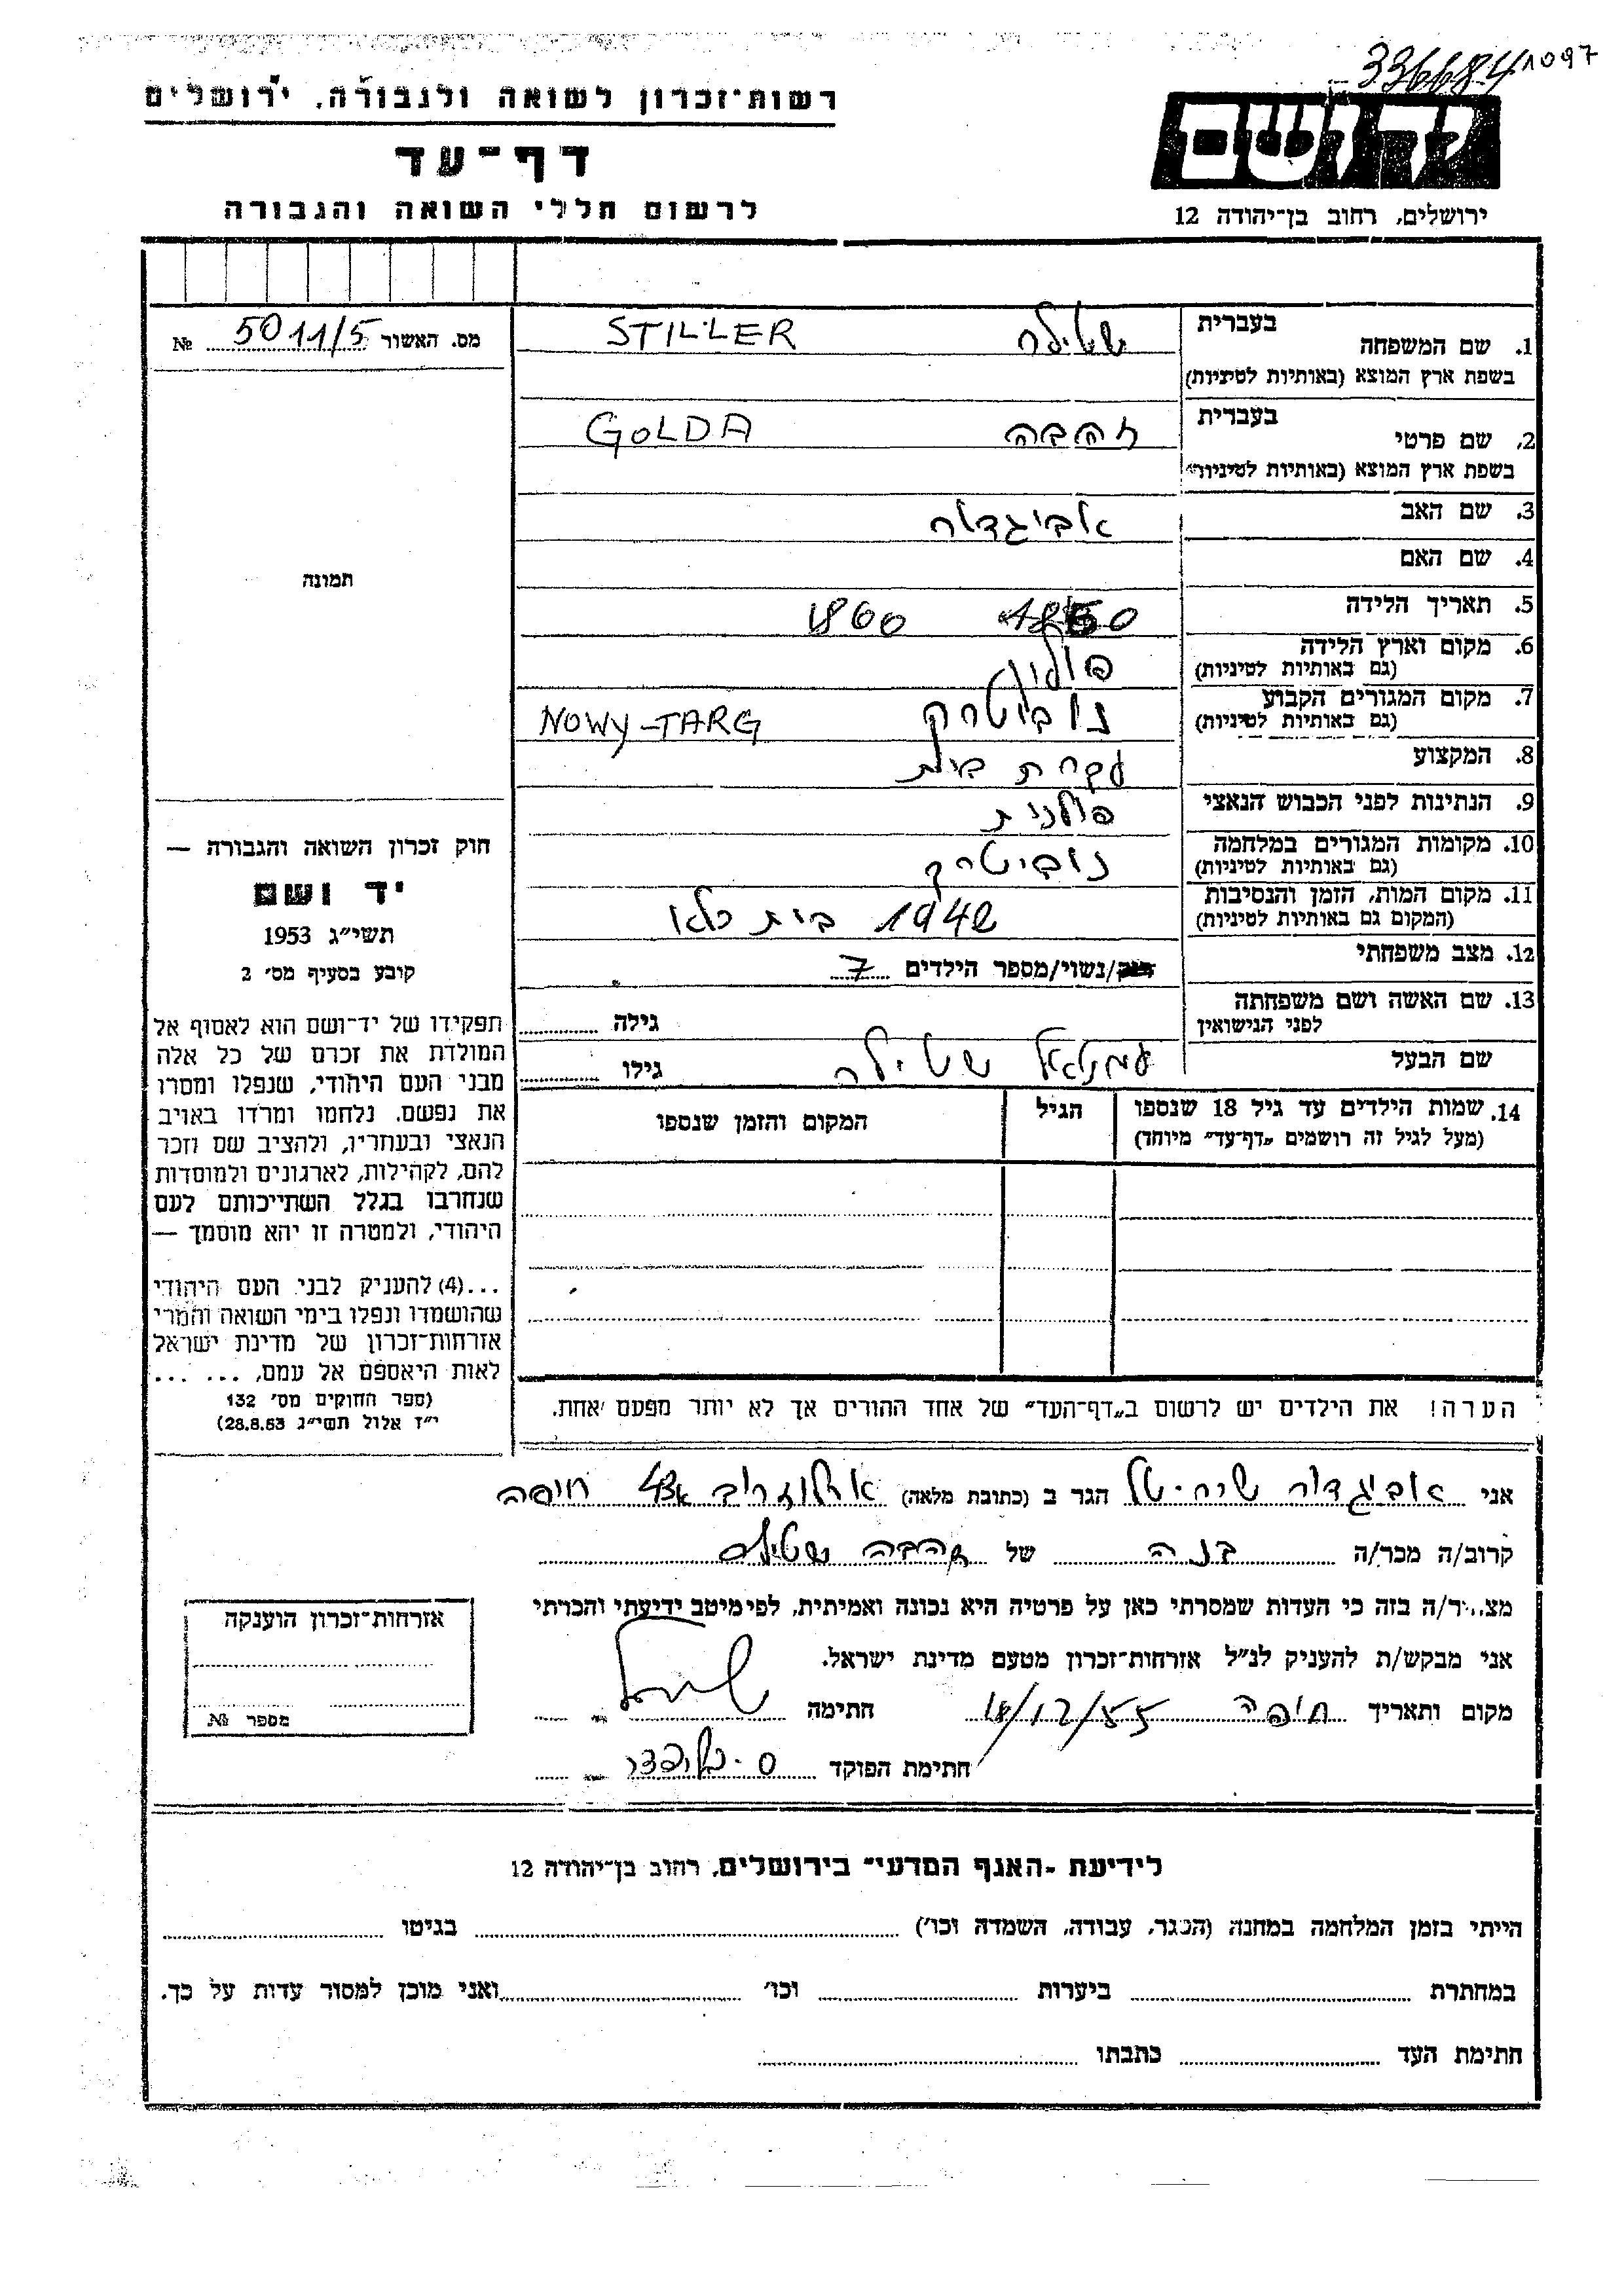 336684 1097
רשות־זכרון לשואה ולגבורה, ירושלים
דף־עד
לרשום חללי השואה והגבורה
ידושם
ירושלים, רחוב בן־יהודה 12
מס. האשור 5011/5 №
תמונה
חוק זכרון השואה והגבורה —
יד ושם
תשי״ג 1953
קובע בסעיף מס׳ 2
תפקידו של יד־ושם הוא לאסוף אל
המולדת את זכרם של כל אלה
מבני העם היהודי, שנפלו ומסרו
את נפשם, נלחמו ומרדו באויב
הנאצי ובעוזריו, ולהציב שם וזכר
להם, לקהילות, לארגונים ולמוסדות
שנחרבו בגלל השתייכותם לעם
היהודי, ולמטרה זו יהא מוסמך —
...(4) להעניק לבני העם היהודי
שהושמדו ונפלו בימי השואה והמרי
אזרחות־זכרון של מדינת ישראל
לאות היאספם אל עמם, ... ...
(ספר החוקים מס׳ 132
י״ז אלול תשי״ג 28.8.53)
בעברית
1. שם המשפחה שטילר STILLER
בשפת ארץ המוצא (באותיות לטיניות)
בעברית
2. שם פרטי זהבה GOLDA
בשפת ארץ המוצא (באותיות לטיניות)
3. שם האב אביגדור
4. שם האם
5. תאריך הלידה 1860
6. מקום וארץ הלידה פולין
(גם באותיות לטיניות)
7. מקום המגורים הקבוע נוביטרק NOWY-TARG
(גם באותיות לטיניות)
8. המקצוע עקרת בית
9. הנתינות לפני הכבוש הנאצי פולנית
10. מקומות המגורים במלחמה נוביטרק
(גם באותיות לטיניות)
11. מקום המות, הזמן והנסיבות 1942 בית כלא
(המקום גם באותיות לטיניות)
12. מצב משפחתי רוק/נשוי/מספר הילדים 7
13. שם האשה ושם משפחתה
לפני הנישואין גילה
שם הבעל עמנואל שטילר גילו
14. שמות הילדים עד גיל 18 שנספו הגיל המקום והזמן שנספו
(מעל לגיל זה רושמים „דף־עד״ מיוחד)
הערה! את הילדים יש לרשום ב„דף־העד״ של אחד ההורים אך לא יותר מפעם אחת.
אני אביגדור שיר-טל הגר ב (כתובת מלאה) ארלוזרוב 43א חיפה
קרוב/ה מכר/ה בנה של זהבה שטילר
מצ...ר/ה בזה כי העדות שמסרתי כאן על פרטיה היא נכונה ואמיתית, לפי מיטב ידיעתי והכרתי
אני מבקש/ת להעניק לנ״ל אזרחות־זכרון מטעם מדינת ישראל.
מקום ותאריך חיפה 18/12/55 חתימה
חתימת הפוקד
אזרחות־זכרון הוענקה
מספר №
לידיעת „האגף המדעי״ בירושלים, רחוב בן־יהודה 12
הייתי בזמן המלחמה במחנה (הסגר, עבודה, השמדה וכו׳) בגיטו
במחתרת ביערות וכו׳ ואני מוכן למסור עדות על כך.
חתימת העד כתבתו